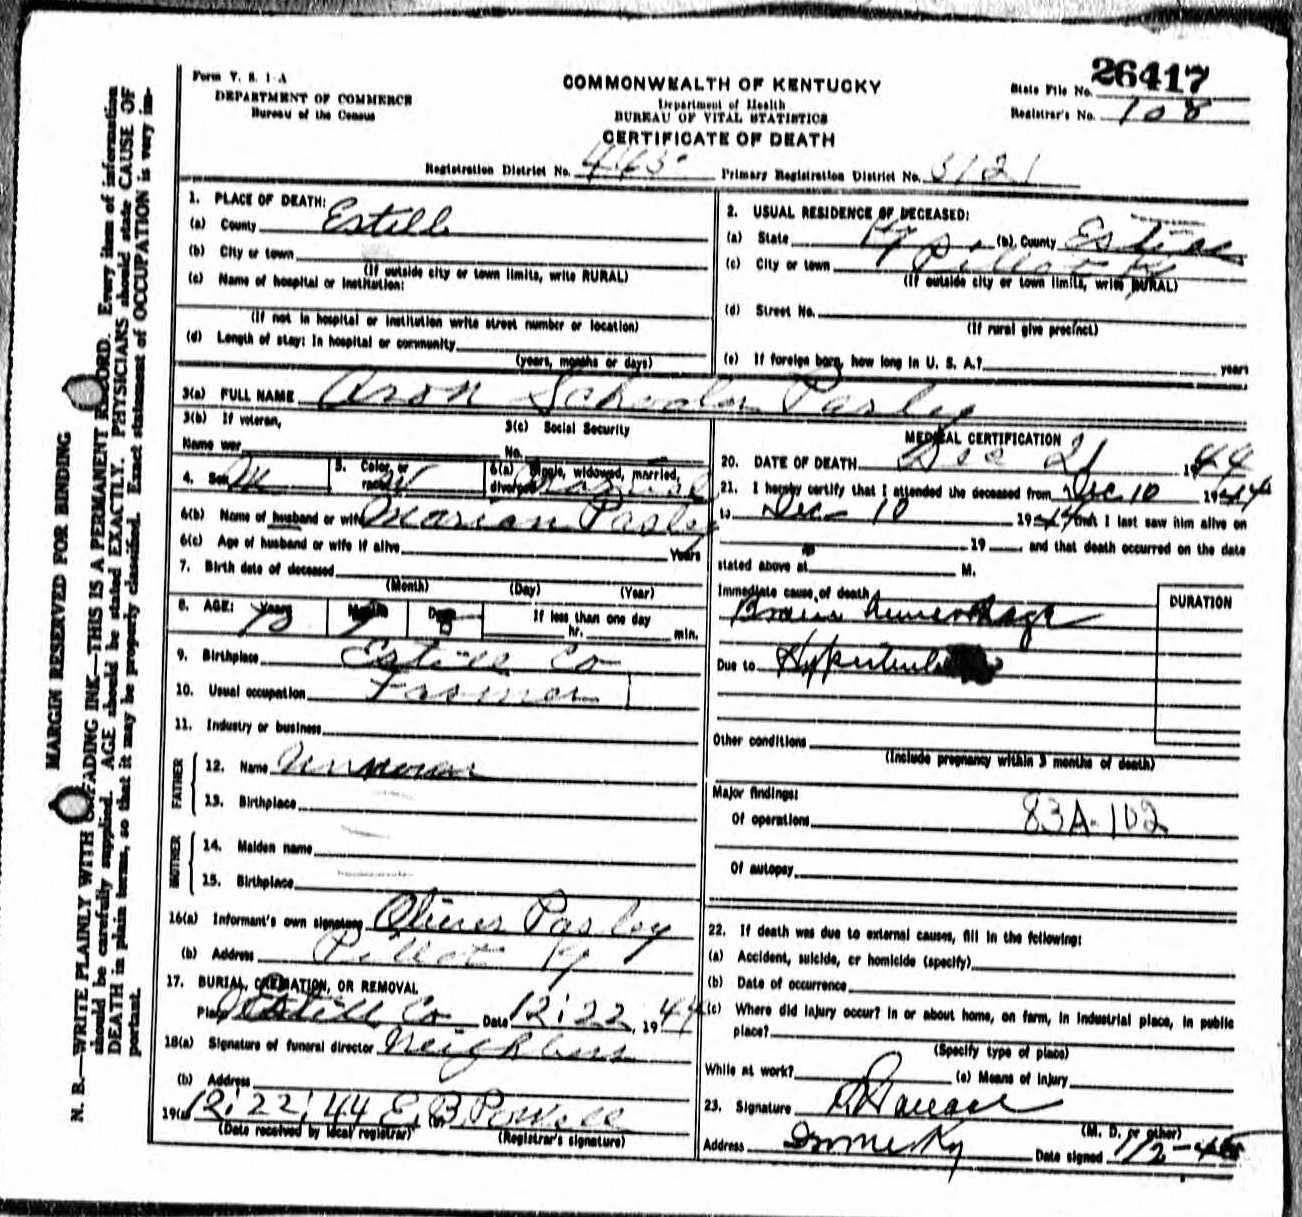 Form V. S. 1-A
DEPARTMENT OF COMMERCE
Bureau of the Census
COMMONWEALTH OF KENTUCKY
Department of Health
BUREAU OF VITAL STATISTICS
CERTIFICATE OF DEATH
State File No. 26417
Registrar's No. 108
Registration District No. 465 Primary Registration District No. 3121
MARGIN RESERVED FOR BINDING
N. B.—WRITE PLAINLY WITH UNFADING INK—THIS IS A PERMANENT RECORD. Every item of information
should be carefully supplied. AGE should be stated EXACTLY. PHYSICIANS should state CAUSE OF
DEATH in plain terms, so that it may be properly classified. Exact statement of OCCUPATION is very im-
portant.
1. PLACE OF DEATH:
(a) County Estill
(b) City or town
(If outside city or town limits, write RURAL)
(c) Name of hospital or institution:
(If not in hospital or institution write street number or location)
(d) Length of stay: In hospital or community
(years, months or days)
2. USUAL RESIDENCE OF DECEASED:
(a) State Ky (b) County Estill
(c) City or town Ky
(If outside city or town limits, write RURAL)
(d) Street No.
(If rural give precinct)
(e) If foreign born, how long in U. S. A.? years
3(a) FULL NAME Aron Pasley
3(b) If veteran,
Name war
3(c) Social Security
No.
4. Sex M 5. Color or race W 6(a) Single, widowed, married, divorced
6(b) Name of husband or wife Marian Pasley
6(c) Age of husband or wife if alive Years
7. Birth date of deceased
(Month) (Day) (Year)
8. AGE: Years Months Days If less than one day
hr. min.
9. Birthplace Estill Co
10. Usual occupation Farmer
11. Industry or business
FATHER
12. Name Unknown
13. Birthplace
MOTHER
14. Maiden name
15. Birthplace
16(a) Informant's own signature Oliver Pasley
(b) Address Ky
17. BURIAL, CREMATION, OR REMOVAL
Place Estill Co Date 12:22, 1944
18(a) Signature of funeral director Neighbors
(b) Address
19(a) 12:22:44 (b) E. B. Powell
(Date received by local registrar) (Registrar's signature)
MEDICAL CERTIFICATION
20. DATE OF DEATH Dec 21 1944
21. I hereby certify that I attended the deceased from Dec 10 1944
to Dec 10 1944 that I last saw him alive on
19 and that death occurred on the date
stated above at M.
Immediate cause of death DURATION
Brain hemorrhage
Due to
Other conditions
(Include pregnancy within 3 months of death)
Major findings:
Of operations 83A-102
Of autopsy
22. If death was due to external causes, fill in the following:
(a) Accident, suicide, or homicide (specify)
(b) Date of occurrence
(c) Where did injury occur? In or about home, on farm, in industrial place, in public
place?
(Specify type of place)
While at work? (e) Means of injury
23. Signature Wallace
(M. D. or other)
Address Irvine Ky Date signed 1/2-45